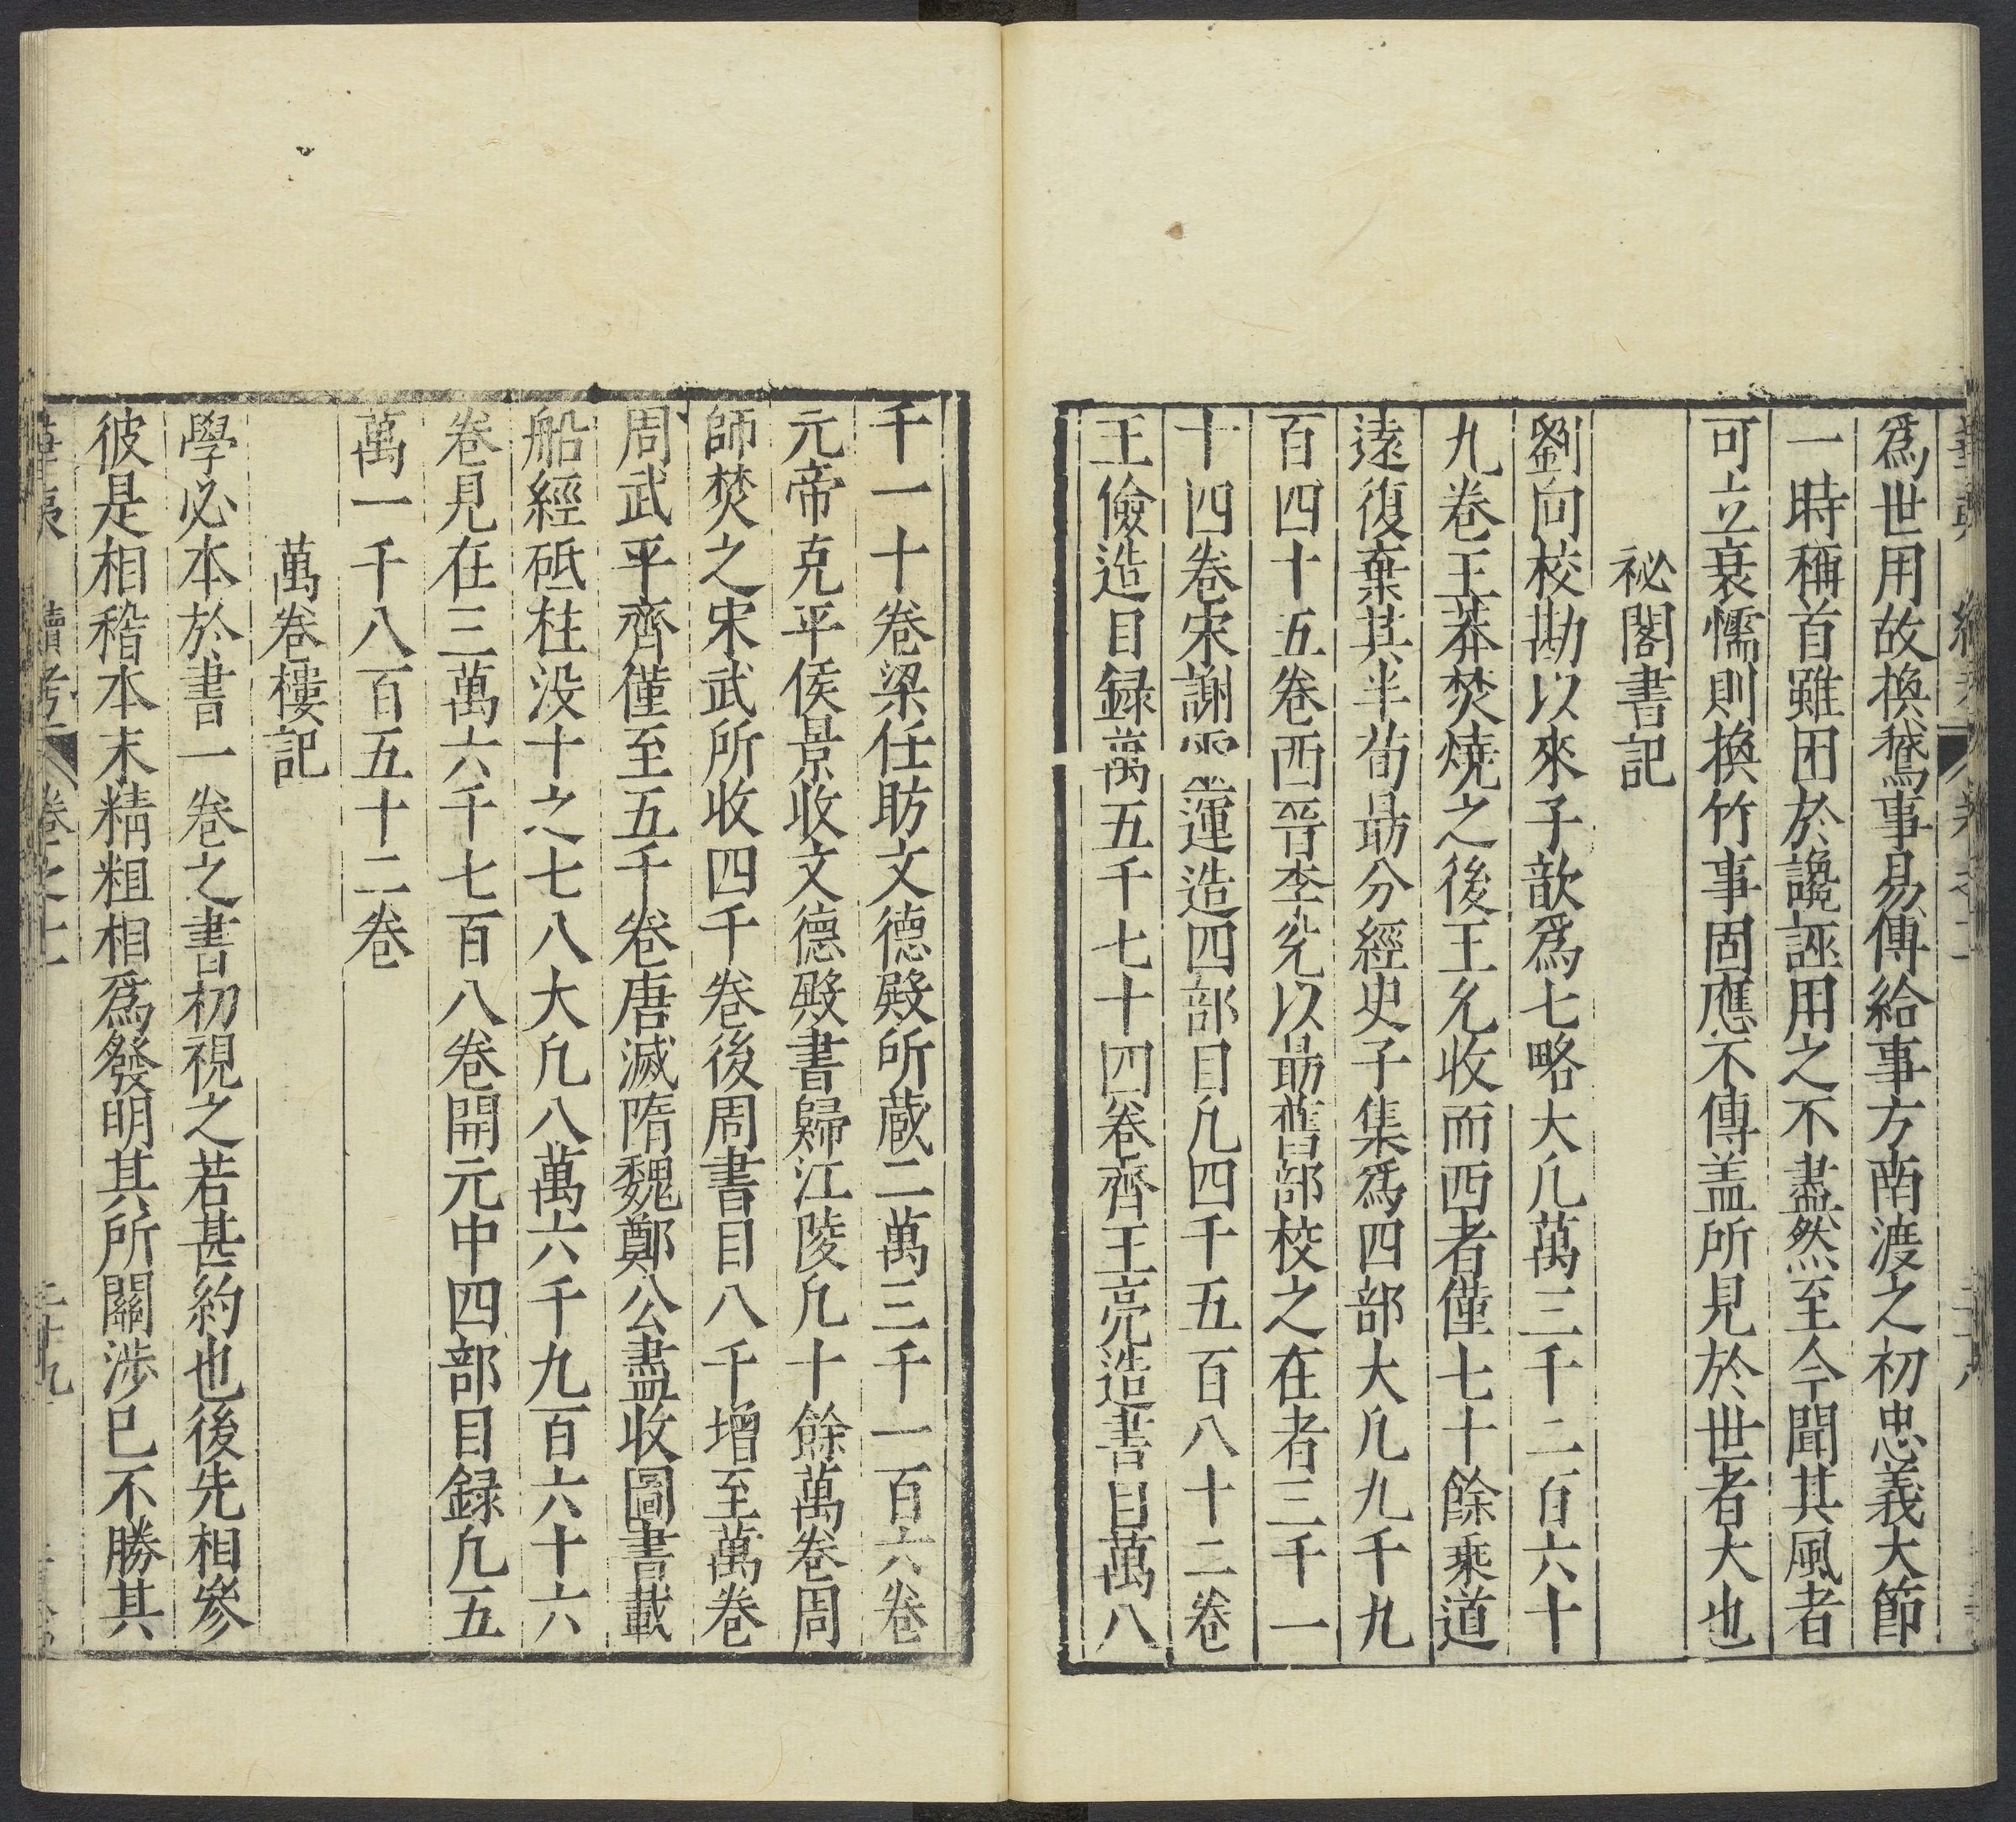 爲世用故換鵞事易傳給事方南渡之初忠義大節
一時稱首雖困於讒誣用之不盡然至今聞其風者
可立衰懦則換竹事固應不傳盖所見於世者大也
祕閣書記
劉向校勘以來子歆爲七略大凢萬三千二百六十
九卷王莽焚燒之後王允收而西者僅七十餘乘道
遠復棄其半荀勗分經史子集爲四部大凢九千九
百四十五卷西晉李充以勗舊部校之在者三千一
十四卷宋謝靈運造四部目凢四千五百八十二卷
王儉造目録萬五千七十四卷齊王亮造書目萬八
千一十卷梁任昉文德殿所蔵二萬三千一百六卷
元帝克平侯景收文德殿書歸江陵凢十餘萬卷周
師焚之宋武所收四千卷後周書目八千增至萬卷
周武平齊僅至五千卷唐滅隋魏鄭公盡收圖書載
船經砥柱没十之七八大凢八萬六千九百六十六
卷見在三萬六千七百八卷開元中四部目録凢五
萬一千八百五十二卷
萬卷樓記
學必本於書一卷之書初視之若甚約也後先相參
彼是相稽本末精粗相爲發明其所關涉已不勝其
續考 卷之十 二十九